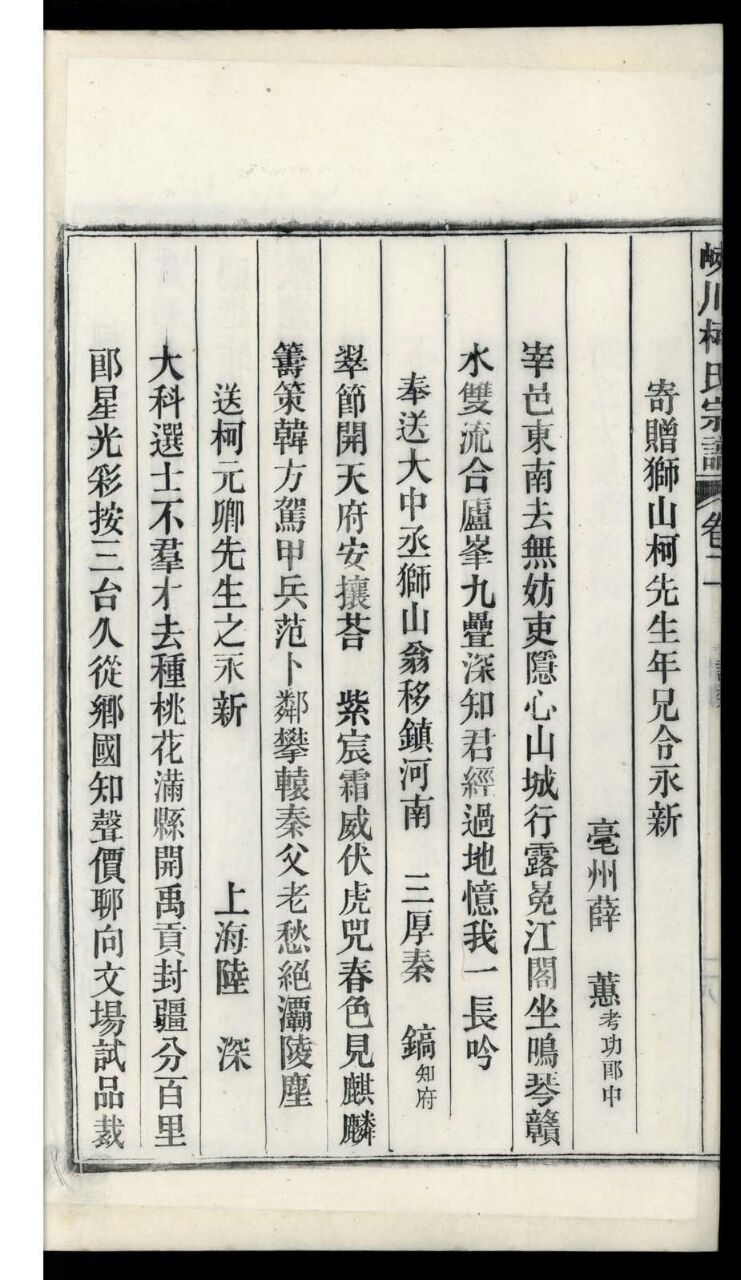 峽川柯氏宗譜 卷二
寄贈獅山柯先生年兄令永新
亳州薛 蕙考功郎中
宰邑東南去無妨吏隱心山城行露冕江閣坐鳴琴贛
水雙流合廬峯九疊深知君經過地憶我一長吟
奉送大中丞獅山翁移鎮河南 三厚秦 鎬知府
翠節開天府安攘荅 紫宸霜威伏虎兕春色見麒麟
籌策韓方駕甲兵范卜鄰攀轅秦父老愁絕灞陵塵
送柯元卿先生之永新 上海陸 深
大科選士不羣才去種桃花滿縣開禹貢封疆分百里
郎星光彩按三台久從鄉國知聲價聊向文場試品裁